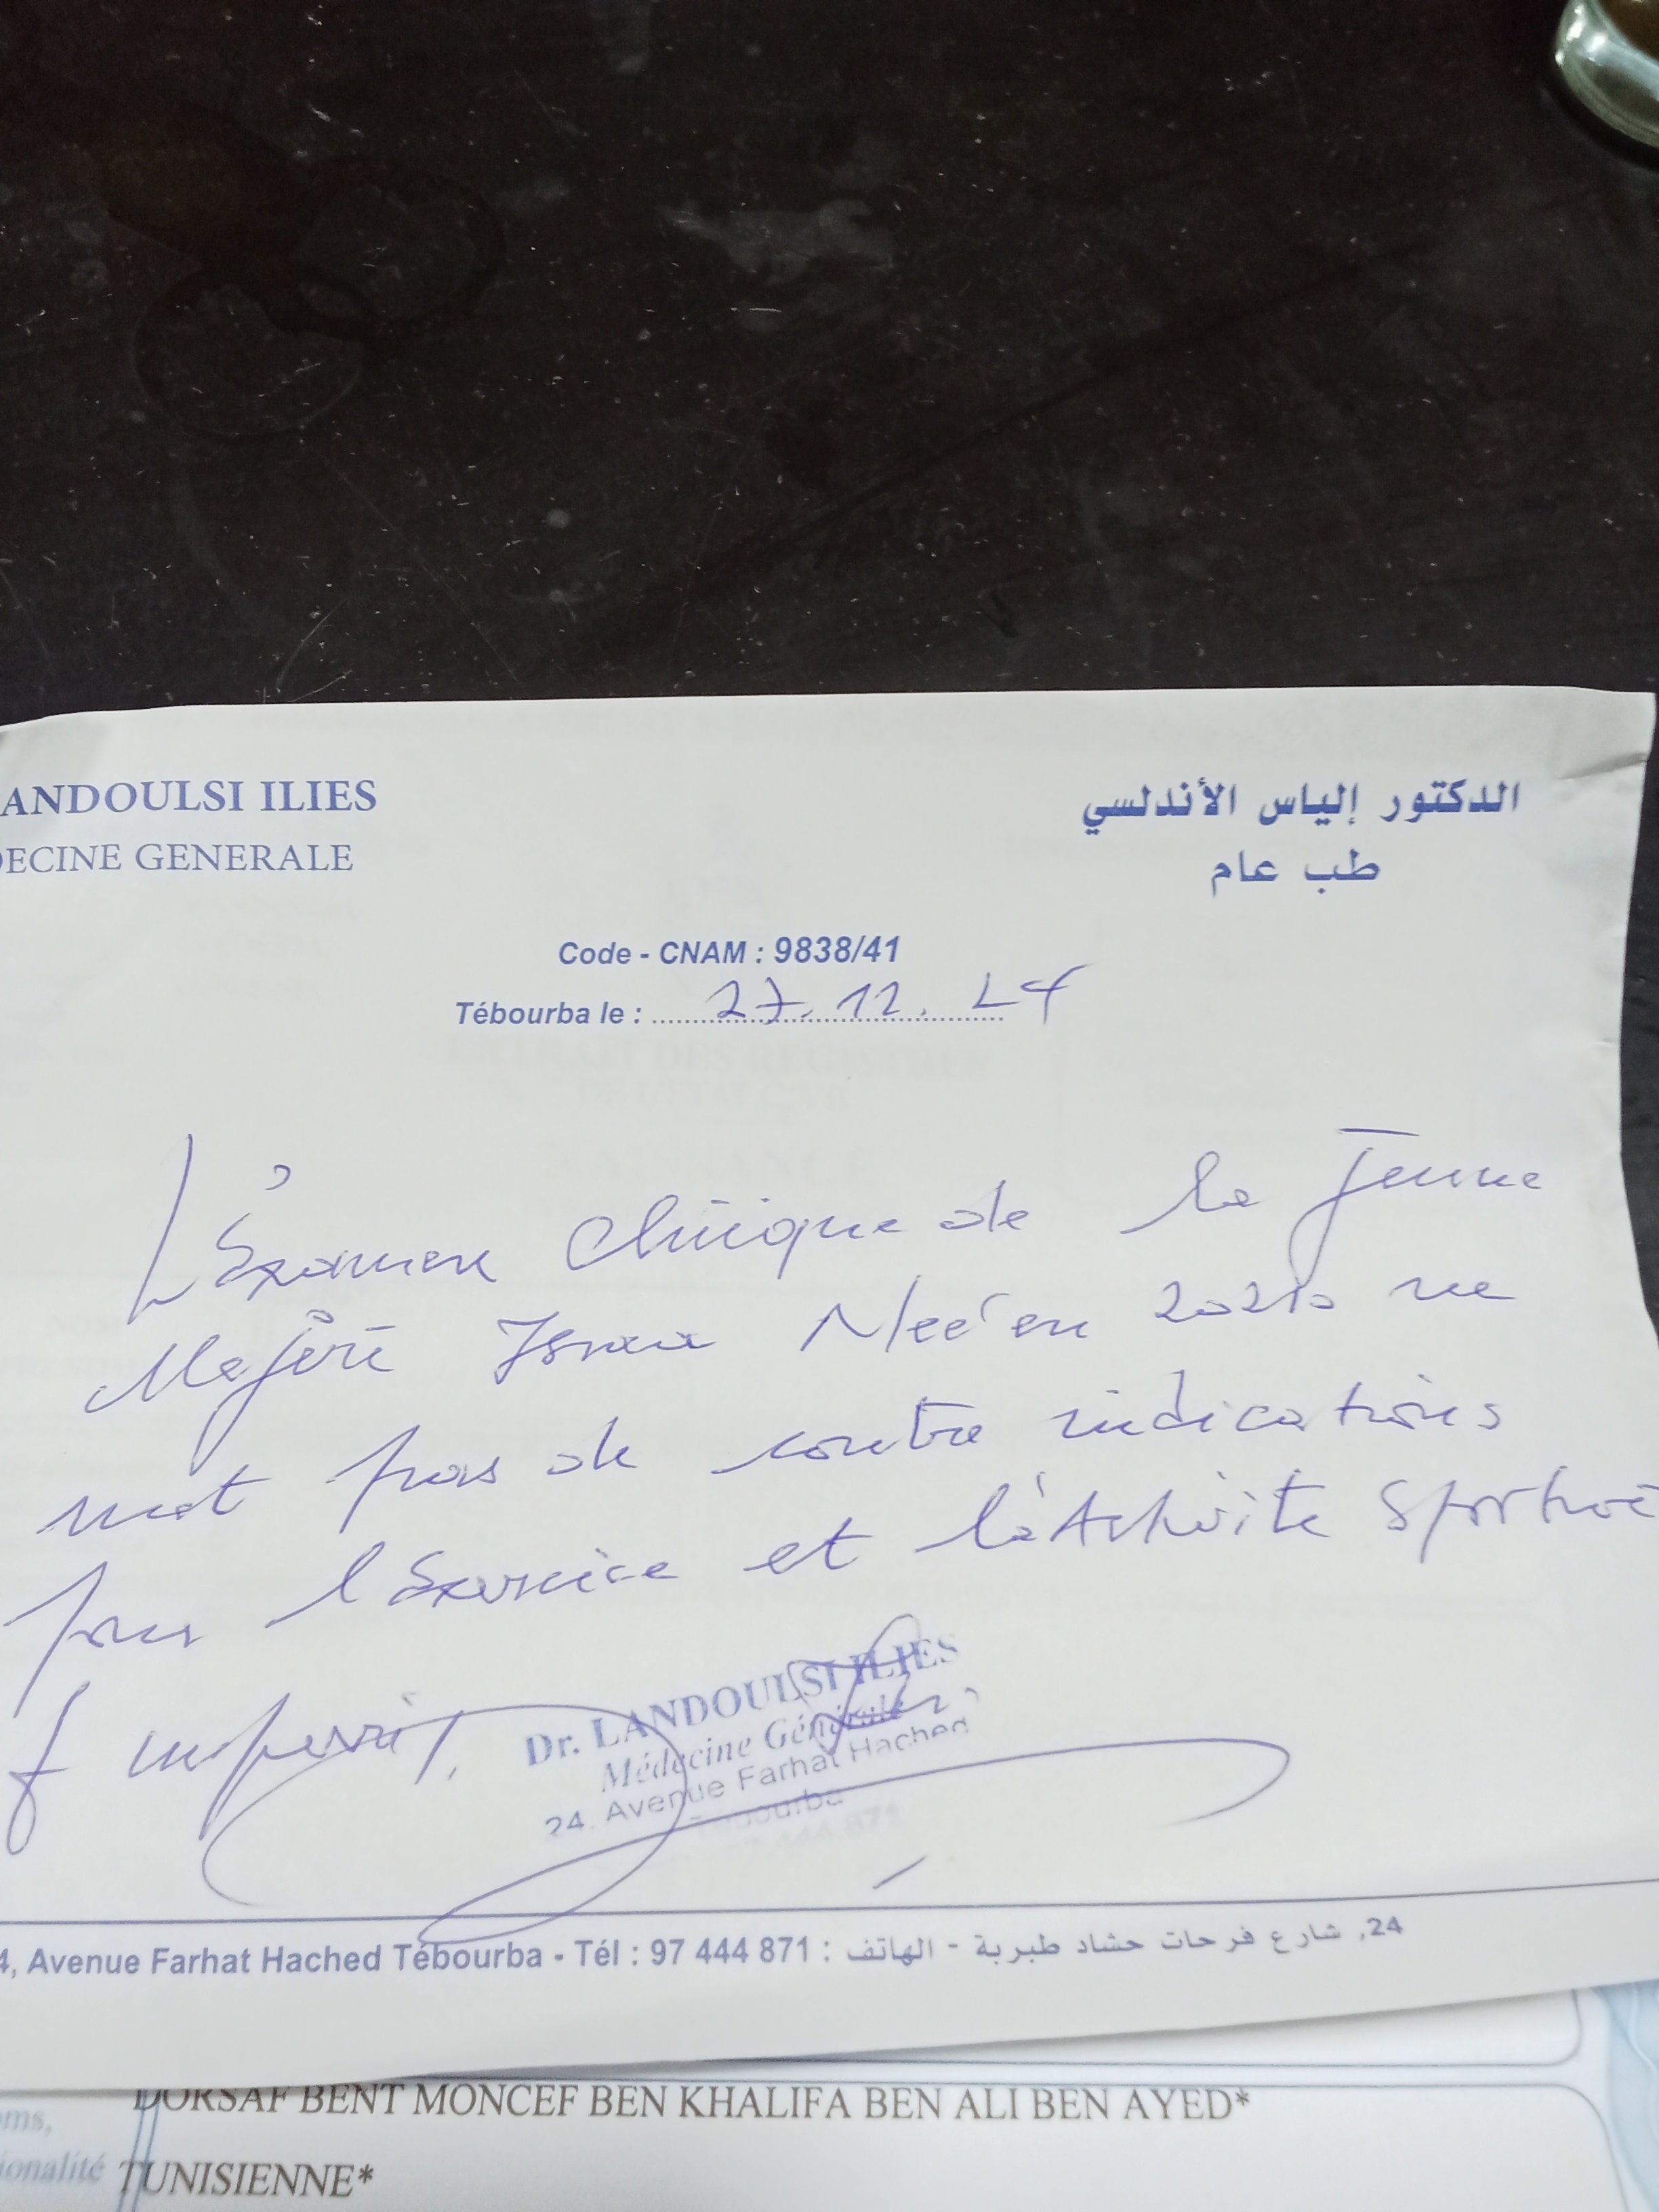 ANDOULSI ILIES
الدكتور إلياس الأندلسي
DECINE GENERALE
طب عام
Code - CNAM : 9838/41
Tébourba le : 27.12.24
L'Examen clinique de la jeune
Née en
met pas de contre indications
pour l'Exercice et l'Activité Sportive
Dr. LANDOULSI ILIES
Médecine Générale
24, Avenue Farhat Hached
Tebourba
97 444 871
4, Avenue Farhat Hached Tébourba - Tél : 97 444 871 : 24, شارع فرحات حشاد طبربة - الهاتف
DORSAF BENT MONCEF BEN KHALIFA BEN ALI BEN AYED*
oms,
ionalité TUNISIENNE*